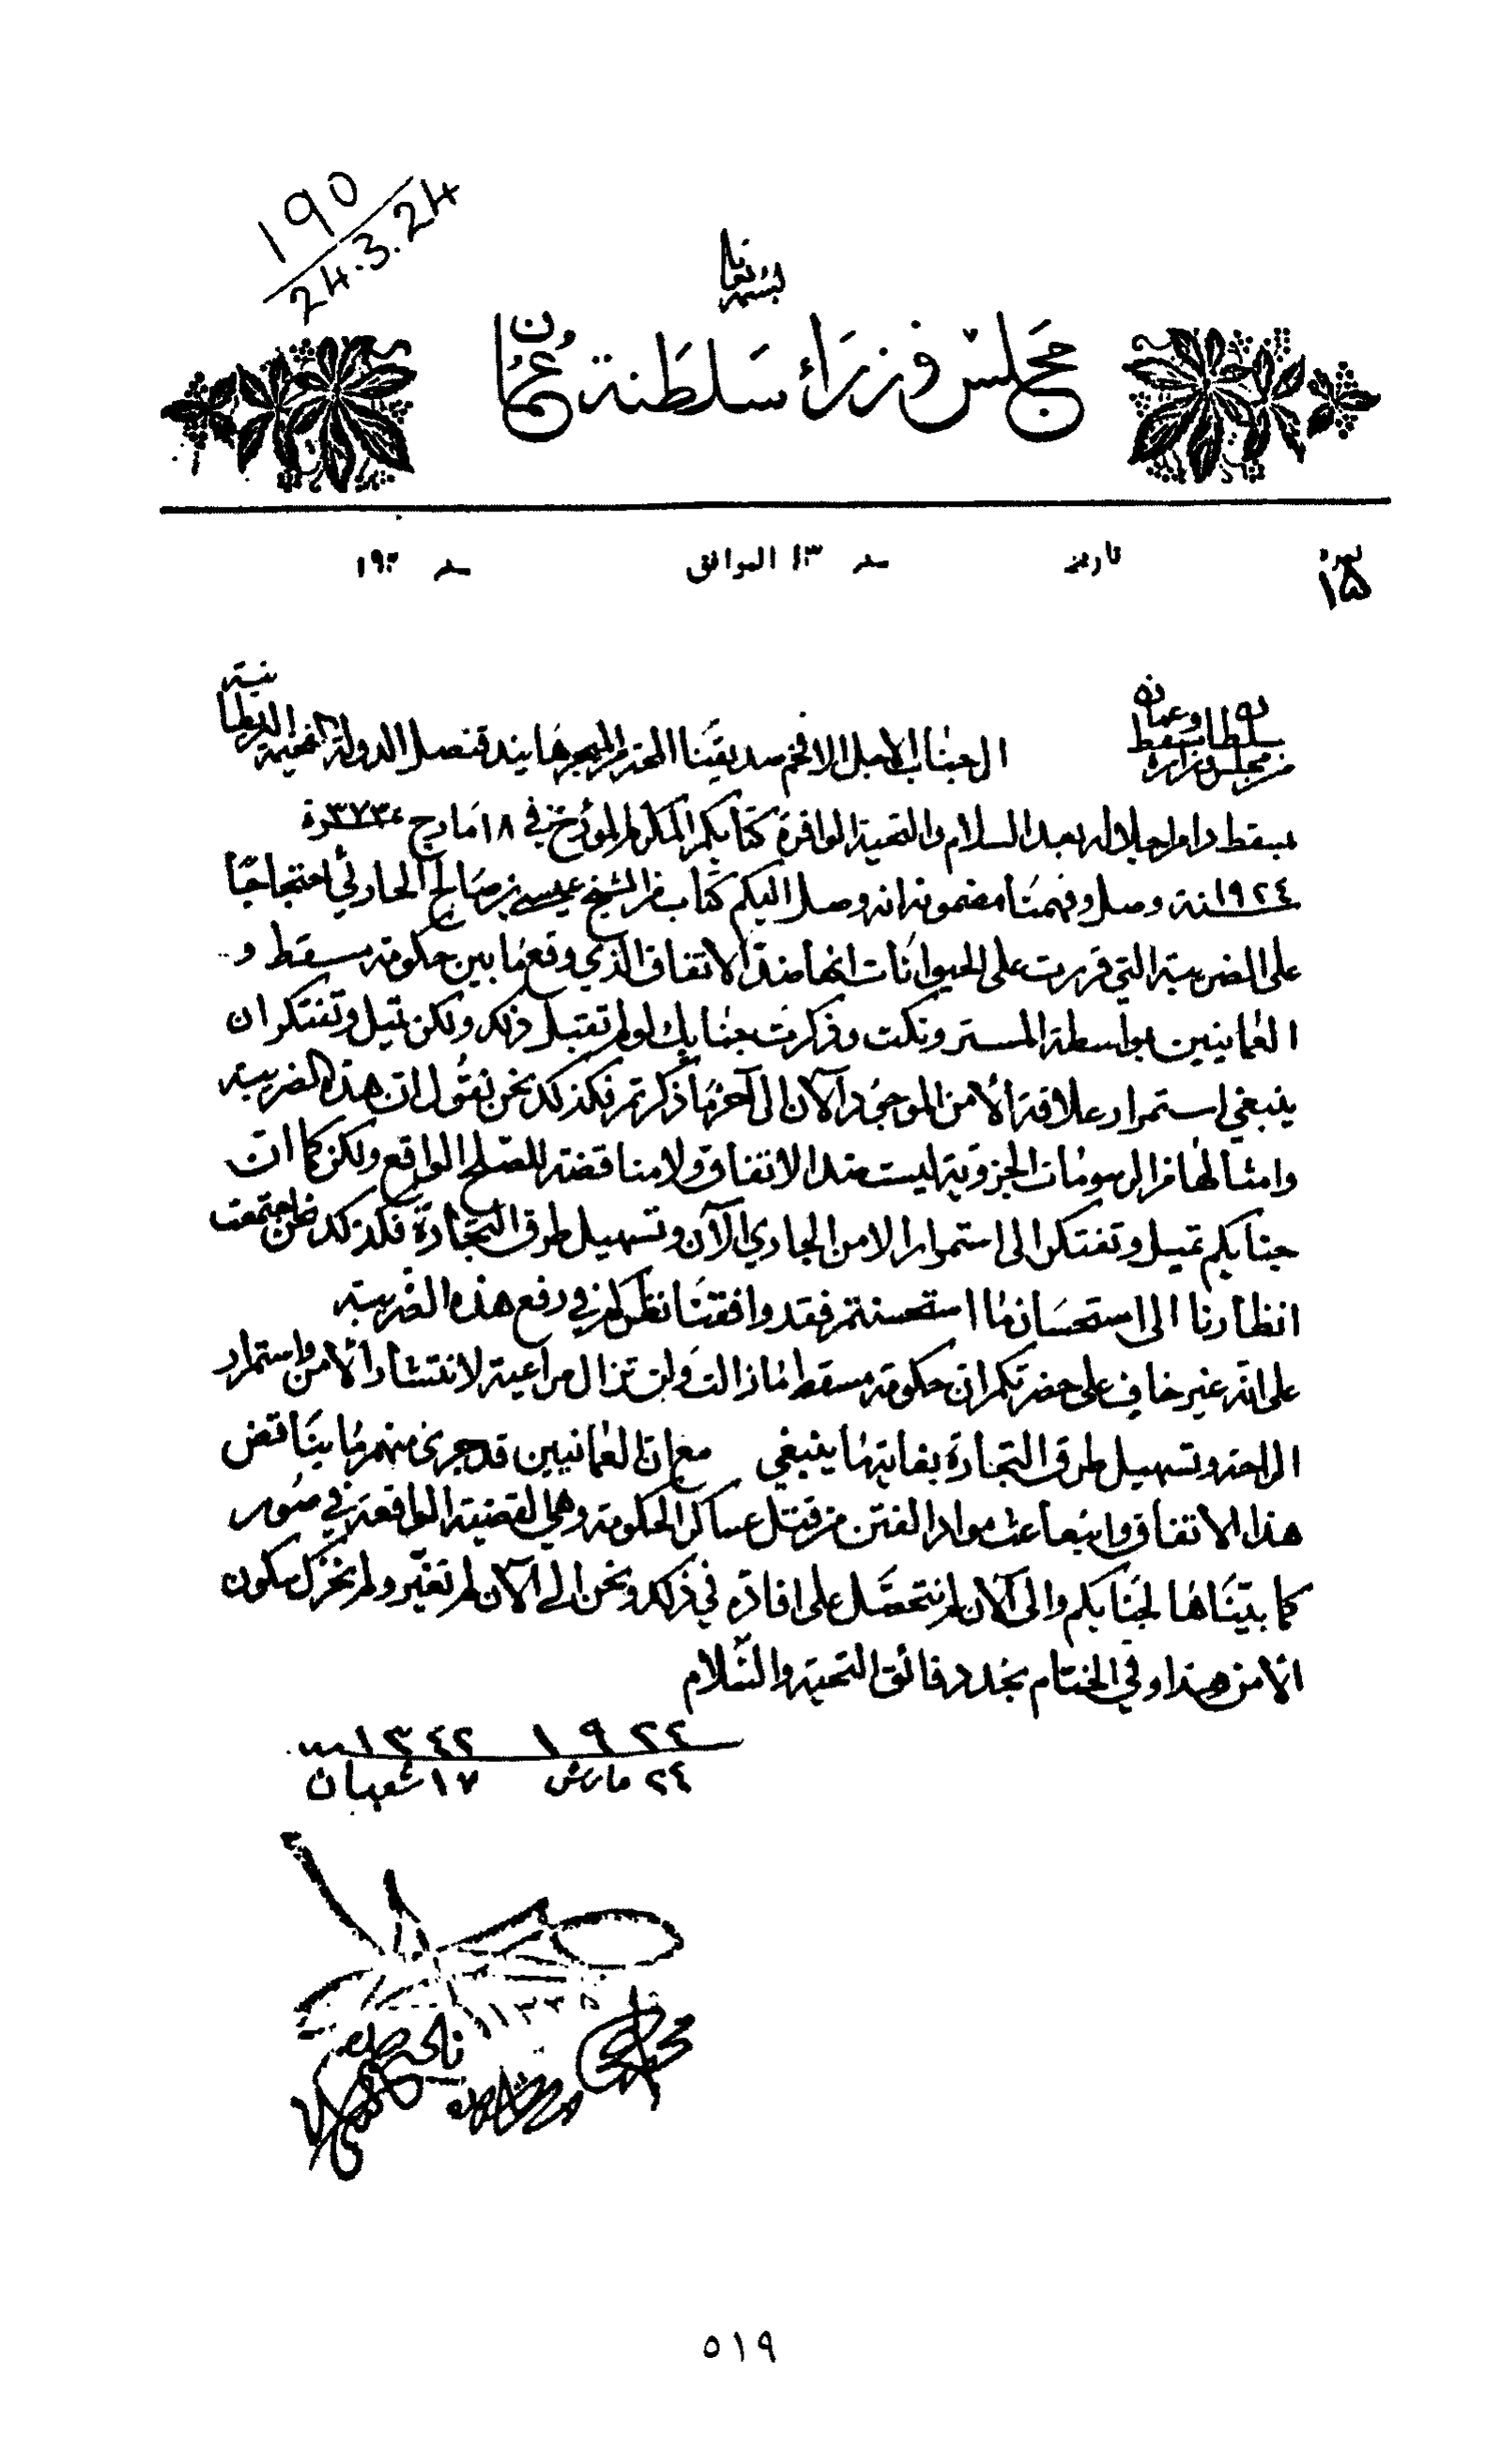 190
24.3.24
بسمه تعالى
مجلس وزراء سلطنة عمان
نمرة تاريخ سنه ١٣ الموافق سنه ١٩٢
١٥
من مجلس وزارة سلطان مسقط وعمان
الى جناب الاجل الافخم صديقنا المحترم الميجر هايند قنصل الدولة الفخيمة البريطانية
بمسقط دام اجلاله بعد السلام والتحية الوافرة كتابكم المكرم المؤرخ في ١٨ مارج نمرة ٣٧٣
١٩٢٤ سنة وصل وفهمنا مضمونه انه وصل اليكم كتاب من الشيخ عيسى بن صالح الحارثي احتجاجًا
على الضريبة التي قررت على الحيوانات انها ضد الاتفاق الذي وقع ما بين حكومة مسقط و
العمانيين بواسطة المستر ونكت وذكرت جنابك لو لم تقبل ذلك ولكن تميل وتفتكر ان
ينبغي استمرار علاقة الأمن الموجود الآن الى آخر ما ذكرتم فكذلك نحن نقول ان هذه الضريبة
وامثالها من الرسومات الجزوية ليست ضد الاتفاق ولا مناقضة للصلح الواقع ولكن كما ان
جنابكم تميل وتفتكر الى استمرار الامن الجاري الآن وتسهيل طرق التجارة فكذلك نحن اجتمعت
انظارنا الى استحسان ما استحسنتم فقد وافقنا نظركم في رفع هذه الضريبة
على انه غير خاف على حضرتكم ان حكومة مسقط ما زالت ولن تزال مراعية لانتشار الأمن واستمرار
الراحة وتسهيل طرق التجارة بغاية ما ينبغي مع ان العمانيين قد جرى منهم ما يناقض
هذا الاتفاق وانبعاث مواد الفتن من قتل عساكر الحكومة وهي القضية الواقعة في صور
كما بيناها لجنابكم والى الآن لم نتحصل على افادة في ذلك ونحن الى الآن لم نغير ولم نحرك سكون
الأمن هذا وفي الختام نجدد فائق التحية والسلام
١٩٢٤ ١٣٤٢ سنه
٢٤ مارش ١٧ شعبان
٥١٩